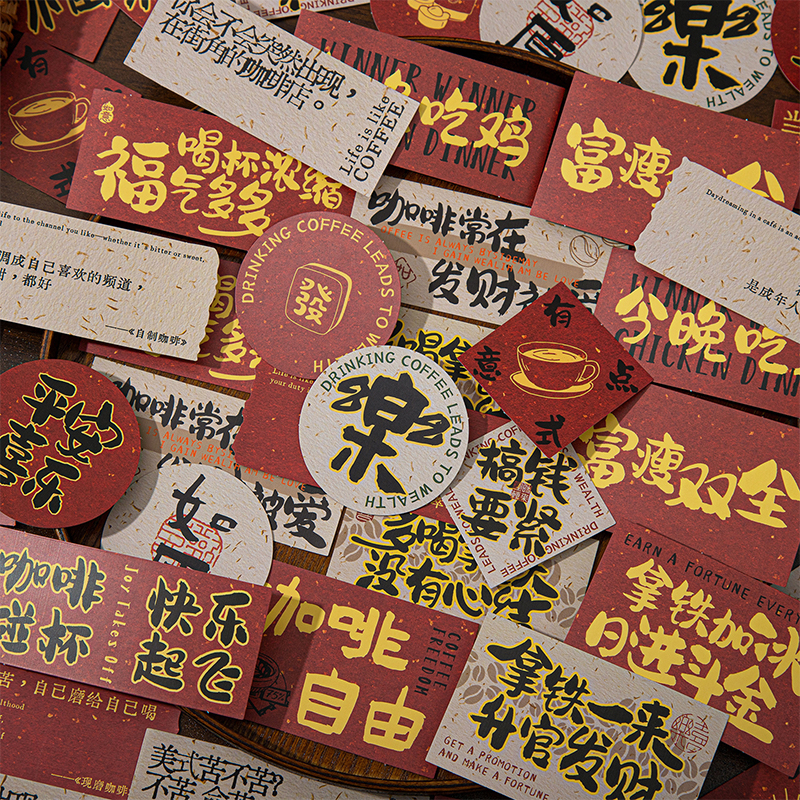 你会不会突然出现，
在街角的咖啡店。
Life is like
COFFEE
WINNER WINNER
吃鸡
DINNER
DRINKING COFFEE LEADS TO WEALTH
有
意
喝杯浓缩
福气多多
富瘦
Daydreaming in a cafe is an
是成年人
咖啡常在
COFFEE IS ALWAYS BY SIDE MAY
I GAIN WEALTH AM BE LUCKY
发财
life to the channel you like—whether it's bitter or sweet.
调成自己喜欢的频道，
甜，都好
——《自制咖啡》
DRINKING COFFEE LEADS TO WEALTH
發
WINNER
今晚吃
CHICKEN DINNER
有
点
意
式
Life is like
your duty
DRINKING COFFEE LEADS TO WEALTH
樂
平安
喜乐
咖啡常在
富瘦双全
搞钱
要紧
DRINKING COFFEE LEADS TO WEALTH
如
多喝
没有心
EARN A FORTUNE EVERY
拿铁加冰
日进斗金
咖啡
碰杯
Joy Takes Off
快乐
起飞
咖啡
自由
COFFEE
FREEDOM
拿铁一来
升官发财
GET A PROMOTION
AND MAKE A FORTUNE
苦，自己磨给自己喝
——《现磨咖啡》
美式苦不苦?